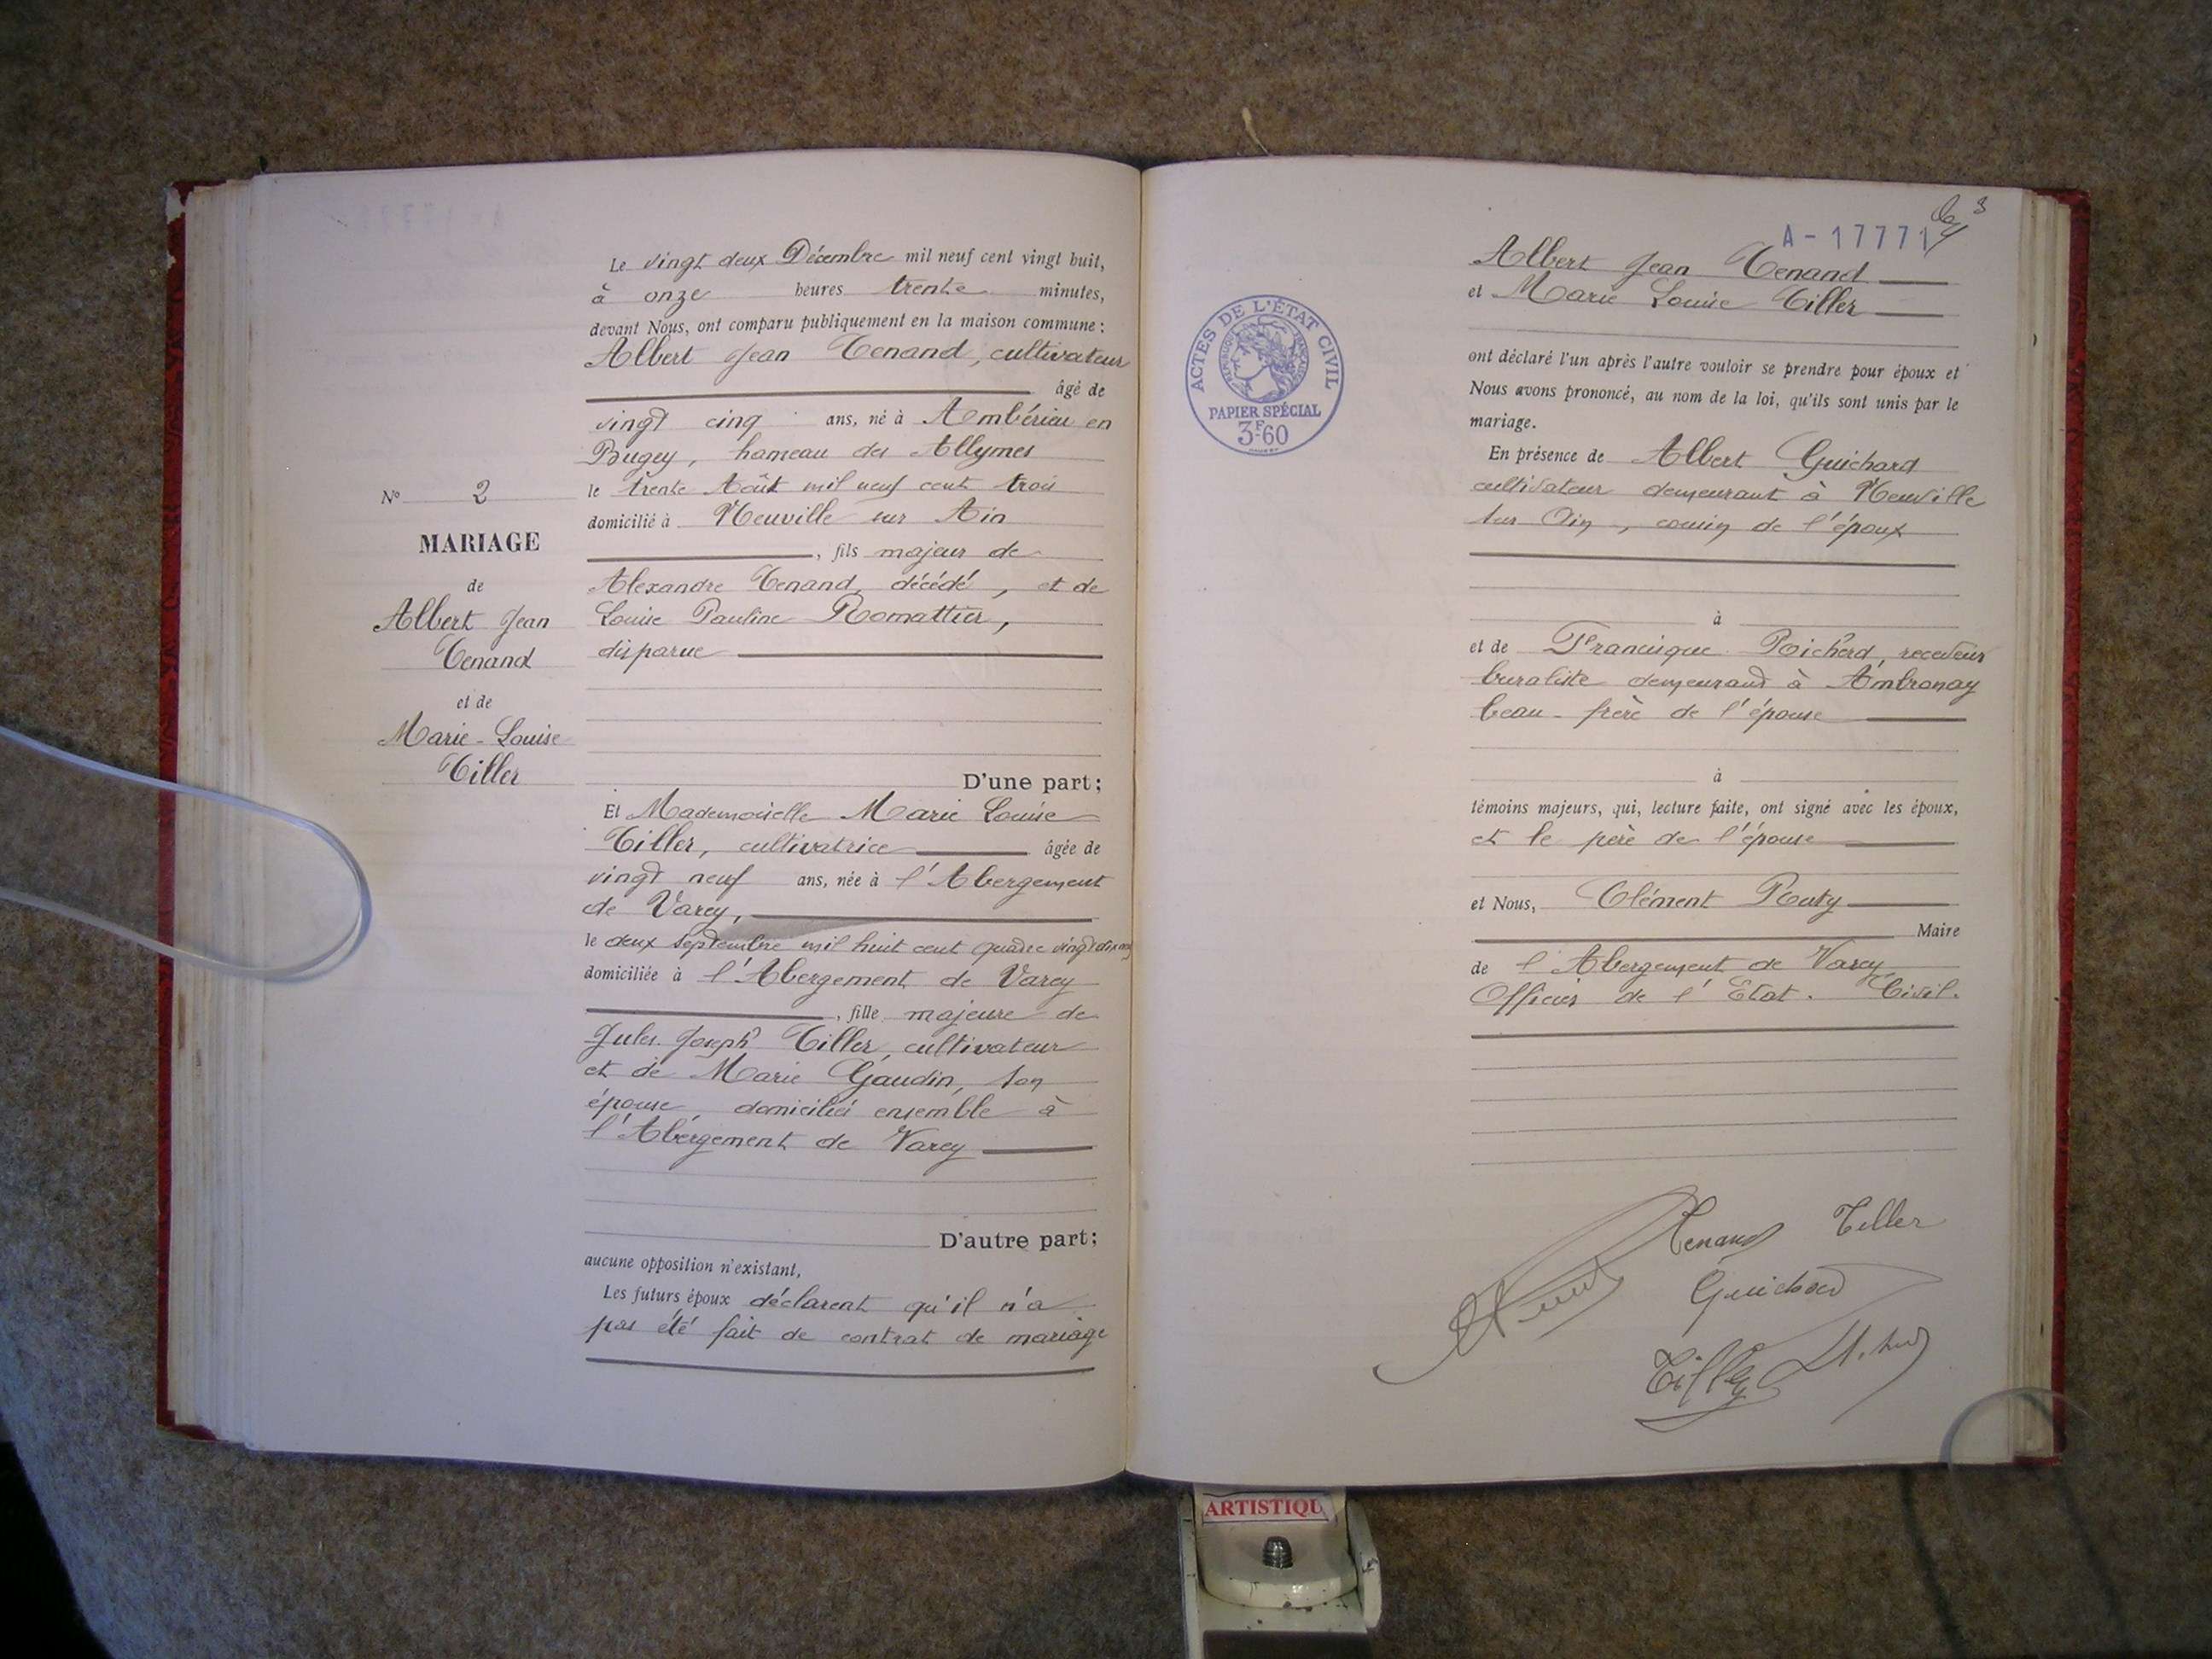 N° 2
MARIAGE
de
Albert Jean
Tenand
et de
Marie-Louise
Tiller
Le vingt deux Décembre mil neuf cent vingt huit,
à onze heures trente minutes,
devant Nous, ont comparu publiquement en la maison commune :
Albert Jean Tenand, cultivateur
âgé de
vingt cinq ans, né à Ambérieu en
Bugey, hameau des Allymes
le trente Août mil neuf cent trois
domicilié à Neuville sur Ain
, fils majeur de
Alexandre Tenand, décédé, et de
Louise Pauline Romattier,
disparue
D'une part;
Et Mademoiselle Marie Louise
Tiller, cultivatrice âgée de
vingt neuf ans, née à l'Abergement
de Varey,
le deux septembre mil huit cent quatre vingt dix neuf
domiciliée à l'Abergement de Varey
, fille majeure de
Jules Joseph Tiller, cultivateur
et de Marie Gaudin, son
épouse, domiciliés ensemble à
l'Abergement de Varey
D'autre part;
aucune opposition n'existant,
Les futurs époux déclarent qu'il n'a
pas été fait de contrat de mariage
3
A-17771
ACTES DE L'ÉTAT CIVIL
RÉPUBLIQUE FRANÇAISE
PAPIER SPÉCIAL
3F60
Albert Jean Tenand
et Marie Louise Tiller
ont déclaré l'un après l'autre vouloir se prendre pour époux et
Nous avons prononcé, au nom de la loi, qu'ils sont unis par le
mariage.
En présence de Albert Guichard
cultivateur demeurant à Neuville
sur Ain, cousin de l'époux
à
et de Francisque Richerd, receveur
buraliste demeurant à Ambronay
beau-frère de l'épouse
à
témoins majeurs, qui, lecture faite, ont signé avec les époux,
et le père de l'épouse
et Nous, Clément
Maire
de l'Abergement de Varey
Officier de l'Etat. Civil.
Tenand Tiller
Guichard
Tiller
ARTISTIQU